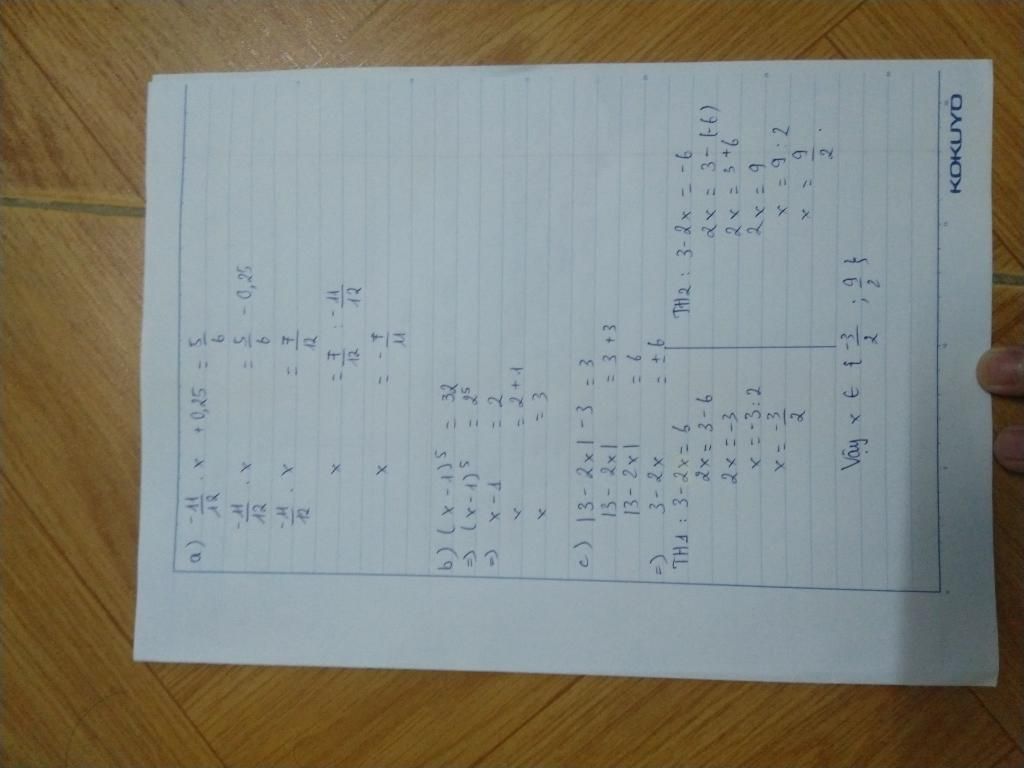 a) -11/12 . x + 0,25 = 5/6
-11/12 . x = 5/6 - 0,25
-11/12 . x = 7/12
x = 7/12 : -11/12
x = -7/11
b) (x-1)⁵ = 32
=) (x-1)⁵ = 2⁵
=) x-1 = 2
x = 2+1
x = 3
c) |3-2x| - 3 = 3
|3-2x| = 3+3
|3-2x| = 6
=) 3-2x = ±6
TH1: 3-2x = 6
2x = 3-6
2x = -3
x = -3:2
x = -3/2
TH2: 3-2x = -6
2x = 3-(-6)
2x = 3+6
2x = 9
x = 9:2
x = 9/2.
Vậy x ∈ {-3/2 ; 9/2}
KOKUYO